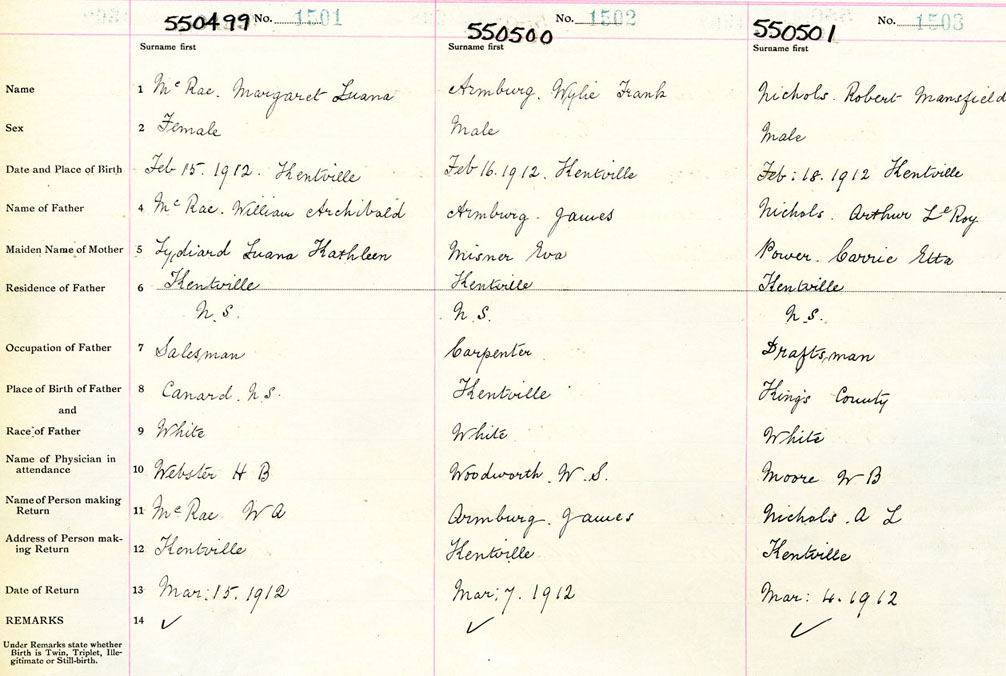 550499 No. 1501 550500 No. 1502 550501 No. 1503
Surname first Surname first Surname first
Name 1 McRae. Margaret Luana Armburg. Wylie Frank Nichols. Robert Mansfield
Sex 2 Female Male Male
Date and Place of Birth 3 Feb 15. 1912. Kentville Feb 16. 1912. Kentville Feb: 18. 1912 Kentville
Name of Father 4 McRae. William Archibald Armburg. James Nichols. Arthur LeRoy
Maiden Name of Mother 5 Lydiard Luana Kathleen Misner Eva Power. Carrie Etta
Residence of Father 6 Kentville Kentville Kentville
N.S. N.S. N.S.
Occupation of Father 7 Salesman Carpenter Draftsman
Place of Birth of Father 8 Canard. N.S. Kentville King's County
and
Race of Father 9 White White White
Name of Physician in
attendance 10 Webster H B Woodworth. W. S. Moore W B
Name of Person making
Return 11 McRae W A Armburg. James Nichols. A L
Address of Person mak-
ing Return 12 Kentville Kentville Kentville
Date of Return 13 Mar: 15. 1912 Mar: 7. 1912 Mar: 4. 1912
REMARKS 14 ✓ ✓ ✓
Under Remarks state whether
Birth is Twin, Triplet, Ille-
gitimate or Still-birth.